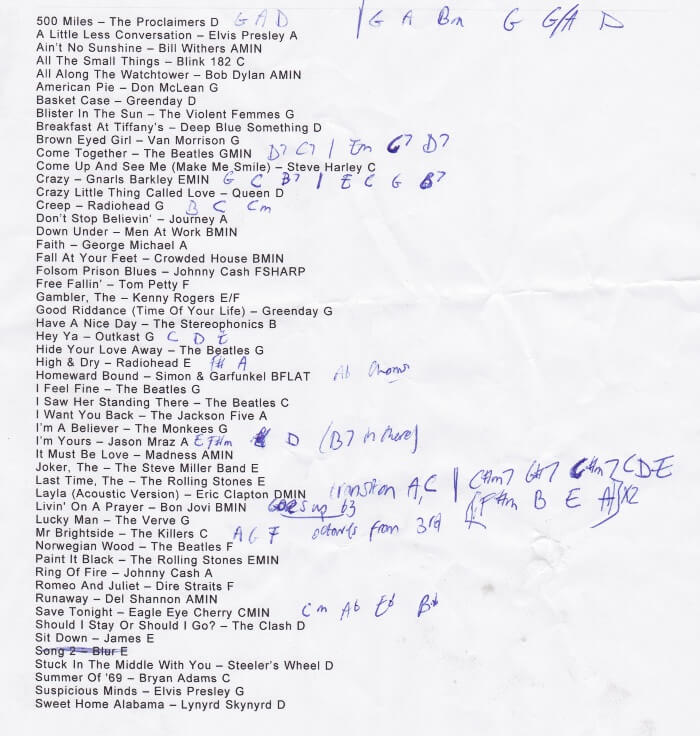 500 Miles – The Proclaimers D G A D | G A Bm G G/A D
A Little Less Conversation – Elvis Presley A
Ain't No Sunshine – Bill Withers AMIN
All The Small Things – Blink 182 C
All Along The Watchtower – Bob Dylan AMIN
American Pie – Don McLean G
Basket Case – Greenday D
Blister In The Sun – The Violent Femmes G
Breakfast At Tiffany's – Deep Blue Something D
Brown Eyed Girl – Van Morrison G
Come Together – The Beatles GMIN D7 C7 | Em G7 D7
Come Up And See Me (Make Me Smile) – Steve Harley C
Crazy – Gnarls Barkley EMIN G C B7 | E C G B7
Crazy Little Thing Called Love – Queen D
Creep – Radiohead G B C Cm
Don't Stop Believin' – Journey A
Down Under – Men At Work BMIN
Faith – George Michael A
Fall At Your Feet – Crowded House BMIN
Folsom Prison Blues – Johnny Cash FSHARP
Free Fallin' – Tom Petty F
Gambler, The – Kenny Rogers E/F
Good Riddance (Time Of Your Life) – Greenday G
Have A Nice Day – The Stereophonics B
Hey Ya – Outkast G C D E
Hide Your Love Away – The Beatles G
High & Dry – Radiohead E F# A
Homeward Bound – Simon & Garfunkel BFLAT Ab
I Feel Fine – The Beatles G
I Saw Her Standing There – The Beatles C
I Want You Back – The Jackson Five A
I'm A Believer – The Monkees G
I'm Yours – Jason Mraz A E F#m D (B7 in there)
It Must Be Love – Madness AMIN
Joker, The – The Steve Miller Band E
Last Time, The – The Rolling Stones E transition A, C | C#m7 G#7 C#m7 C D-E
Layla (Acoustic Version) – Eric Clapton DMIN (F#m B E A) X2
Livin' On A Prayer – Bon Jovi BMIN GOES up b3
Lucky Man – The Verve G
Mr Brightside – The Killers C A G F octaves from 3rd
Norwegian Wood – The Beatles F
Paint It Black – The Rolling Stones EMIN
Ring Of Fire – Johnny Cash A
Romeo And Juliet – Dire Straits F
Runaway – Del Shannon AMIN
Save Tonight – Eagle Eye Cherry CMIN Cm Ab Eb Bb
Should I Stay Or Should I Go? – The Clash D
Sit Down – James E
Song 2 – Blur E
Stuck In The Middle With You – Steeler's Wheel D
Summer Of '69 – Bryan Adams C
Suspicious Minds – Elvis Presley G
Sweet Home Alabama – Lynyrd Skynyrd D